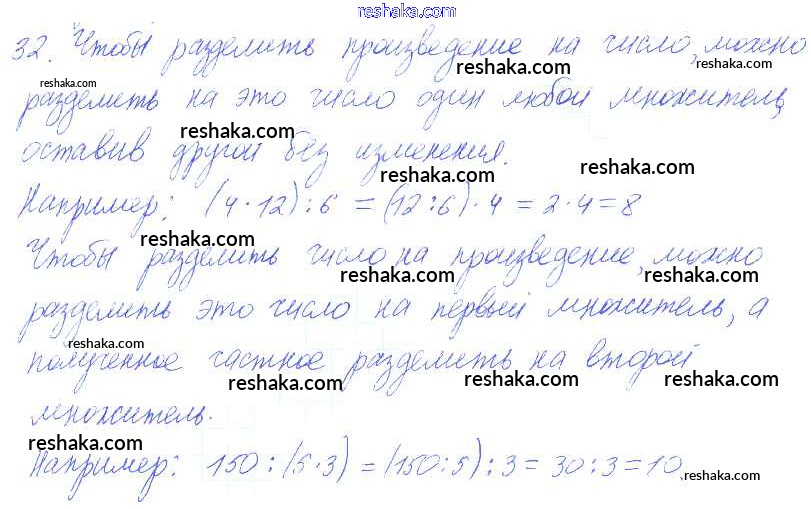 reshaka.com
32. Чтобы разделить произведение на число, можно
reshaka.com reshaka.com reshaka.com
разделить на это число один любой множитель,
reshaka.com reshaka.com
оставив другой без изменения.
reshaka.com
Например: (4·12):6 = (12:6)·4 = 2·4=8
reshaka.com
Чтобы разделить число на произведение, можно
reshaka.com reshaka.com
разделить это число на первый множитель, а
reshaka.com reshaka.com
полученное частное разделить на второй
reshaka.com reshaka.com reshaka.com
множитель.
reshaka.com
Например: 150:(5·3)=(150:5):3=30:3=10.
reshaka.com reshaka.com